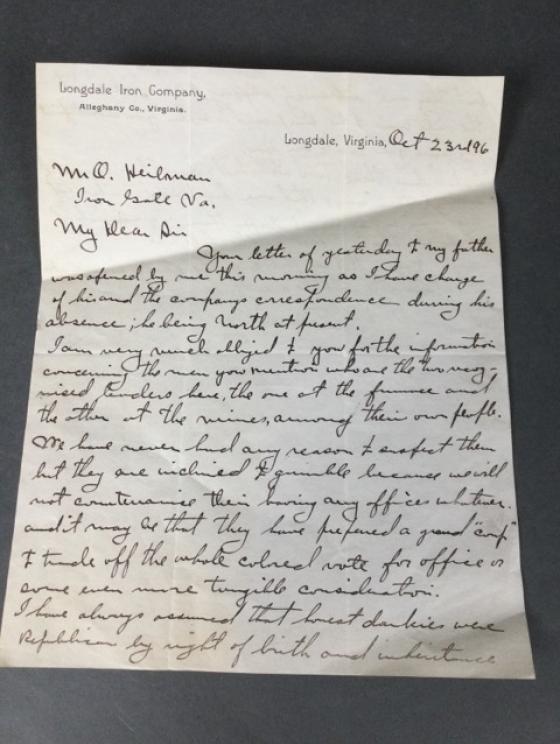 Longdale Iron Company,
Alleghany Co., Virginia.
Longdale, Virginia, Oct 23rd 96
Mr O. Heilman
Iron Gate Va.
My Dear Sir
Your letter of yesterday to my father
was opened by me this morning as I have charge
of his and the companys correspondence during his
absence; he being North at present.
I am very much obliged to you for the information
concerning the men you mention who are the two recog-
nised leaders here, the one at the furnace and
the other at the mines, among their own people.
We have never had any reason to suspect them
but they are inclined to grumble because we will
not countenance their having any offices whatever.
and it may be that they have prepared a grand "coup"
to trade off the whole colored vote for office or
some even more tangible consideration.
I have always assumed that honest darkies were
Republican by right of birth and inheritance